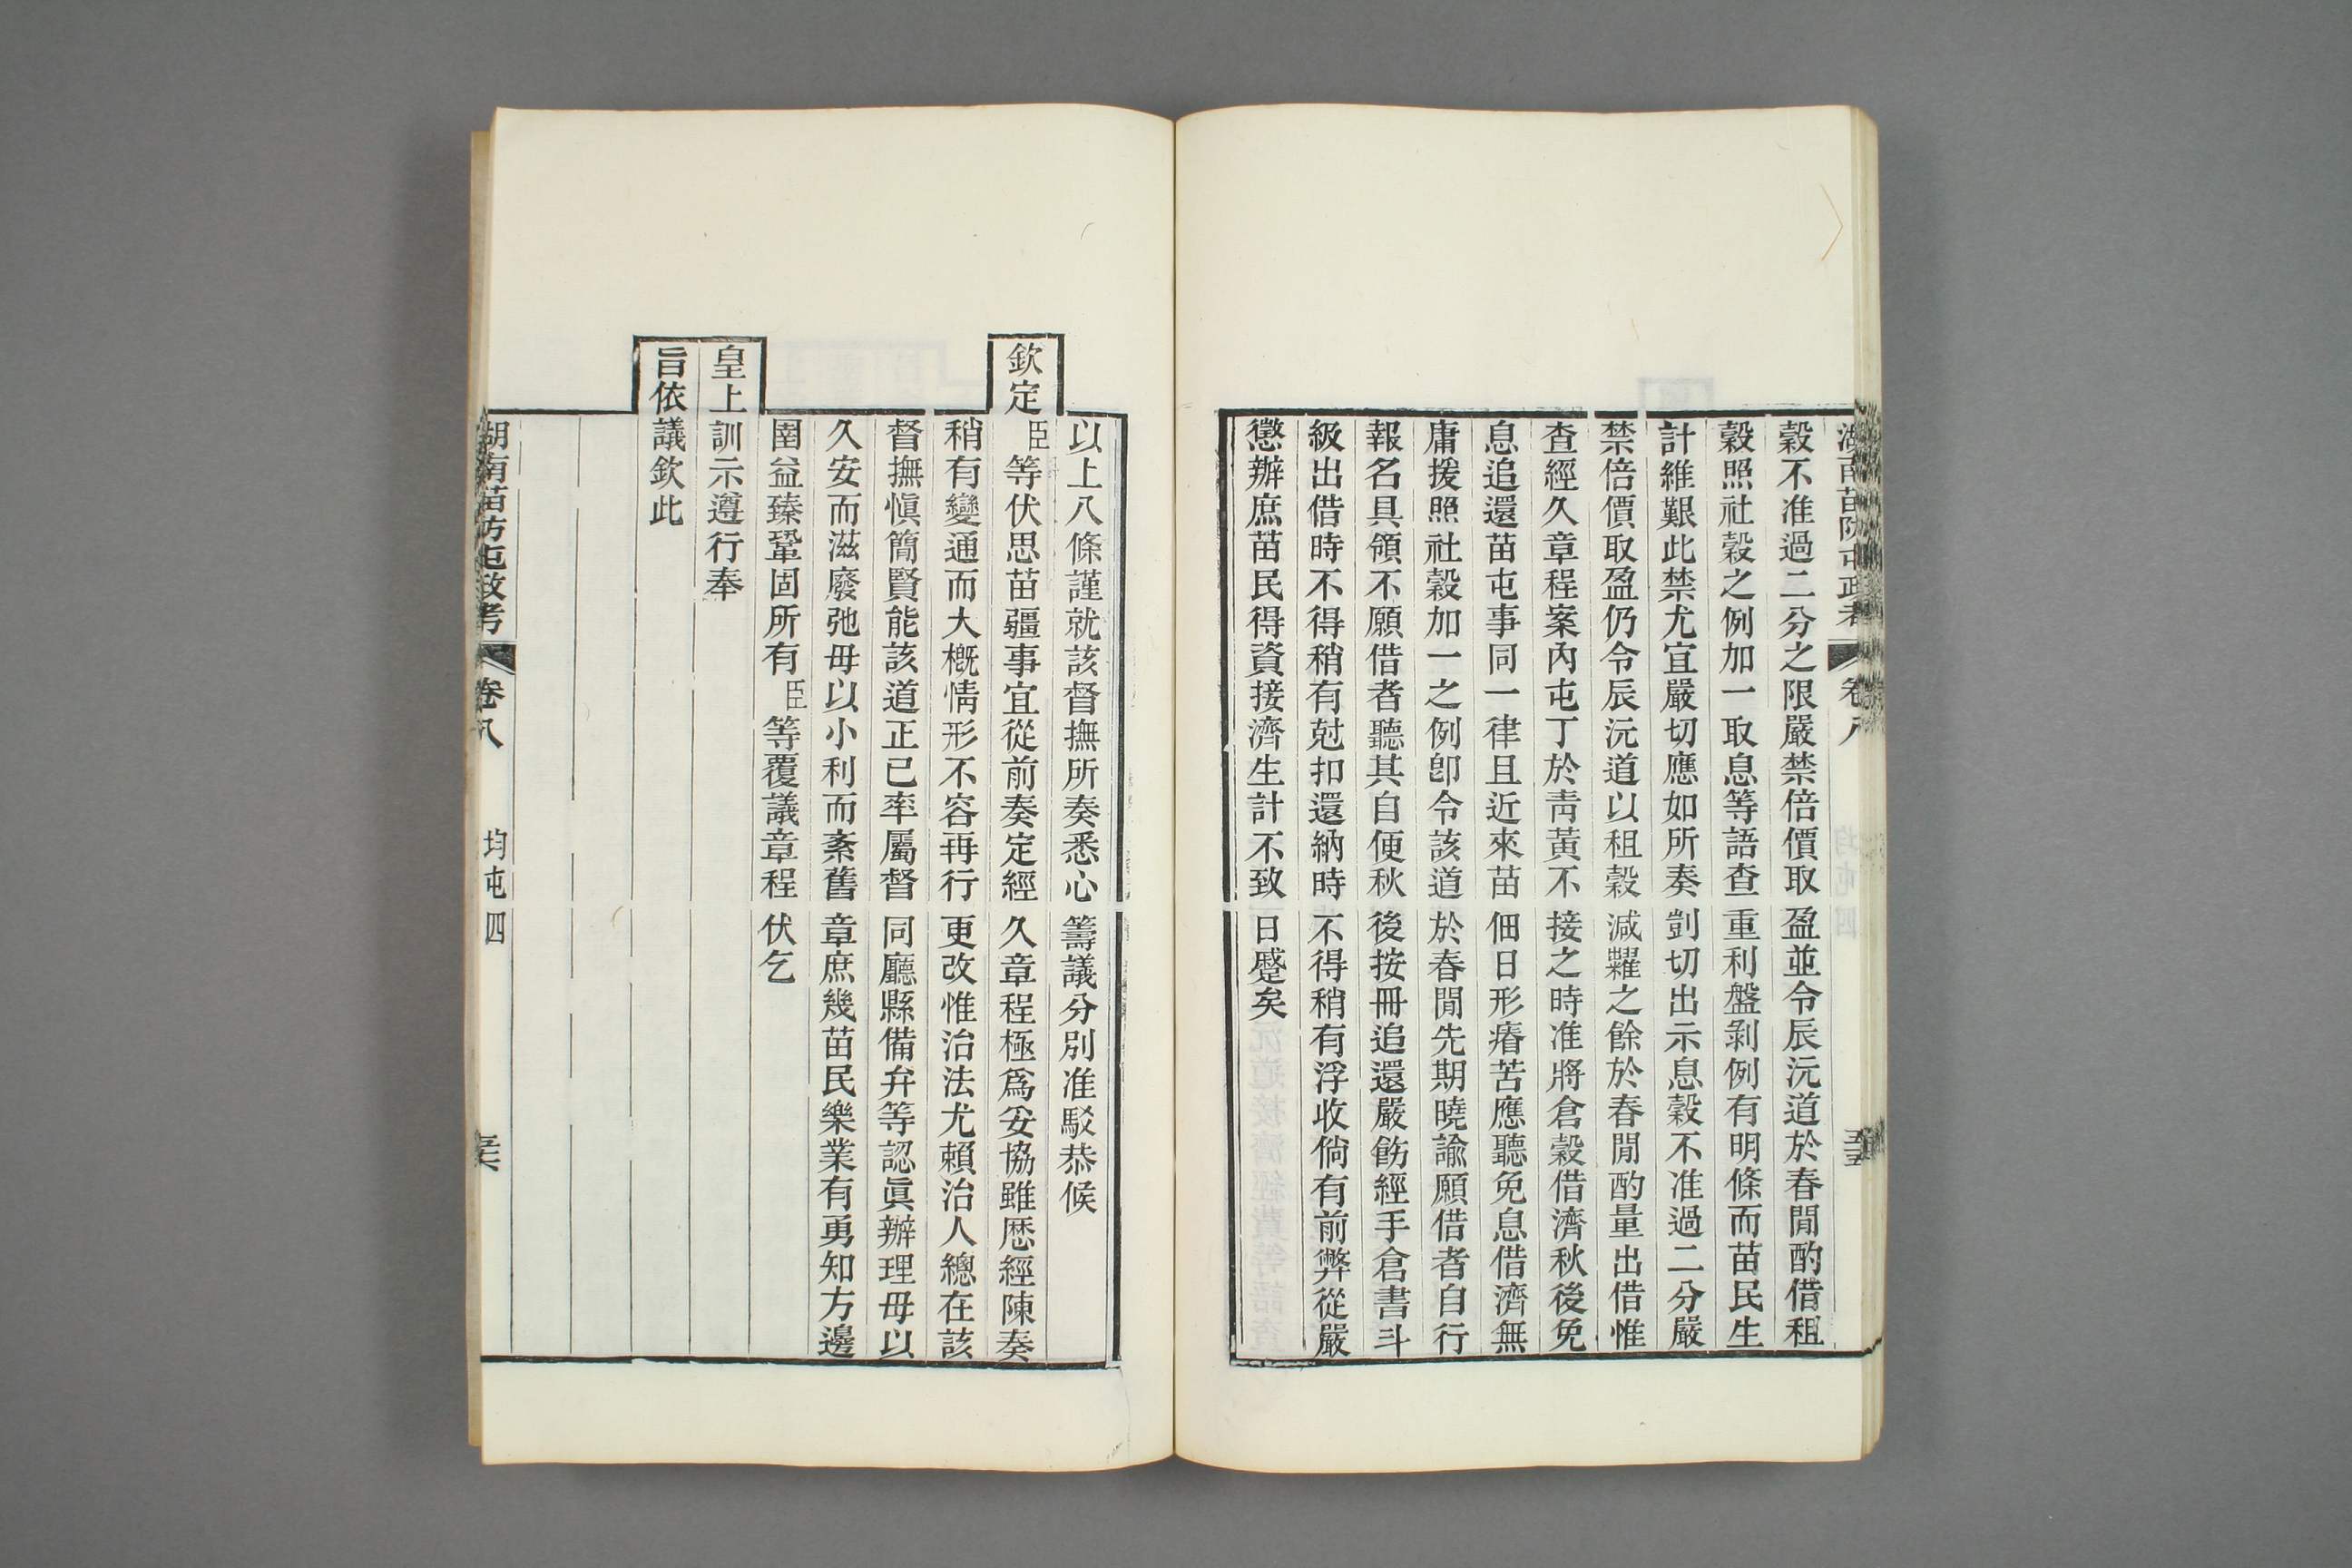 湖南苗防屯政考 卷八 均屯四 五五
穀不准過二分之限嚴禁倍價取盈並令辰沅道於春閒酌借租
穀照社穀之例加一取息等語查重利盤剝例有明條而苗民生
計維艱此禁尤宜嚴切應如所奏剴切出示息穀不准過二分嚴
禁倍價取盈仍令辰沅道以租穀減糶之餘於春閒酌量出借惟
查經久章程案內屯丁於靑黃不接之時准將倉穀借濟秋後免
息追還苗屯事同一律且近來苗佃日形瘠苦應聽免息借濟無
庸援照社穀加一之例卽令該道於春閒先期曉諭願借者自行
報名具領不願借者聽其自便秋後按冊追還嚴飭經手倉書斗
級出借時不得稍有尅扣還納時不得稍有浮收倘有前弊從嚴
懲辦庶苗民得資接濟生計不致日蹙矣
以上八條謹就該督撫所奏悉心籌議分別准駁恭候
欽定臣等伏思苗疆事宜從前奏定經久章程極爲妥協雖歷經陳奏
稍有變通而大槪情形不容再行更改惟治法尤賴治人總在該
督撫愼簡賢能該道正已率屬督同廳縣備弁等認眞辦理毋以
久安而滋廢弛毋以小利而紊舊章庶幾苗民樂業有勇知方邊
圉益臻鞏固所有臣等覆議章程伏乞
皇上訓示遵行奉
旨依議欽此
湖南苗防屯政考 卷八 均屯四 五六